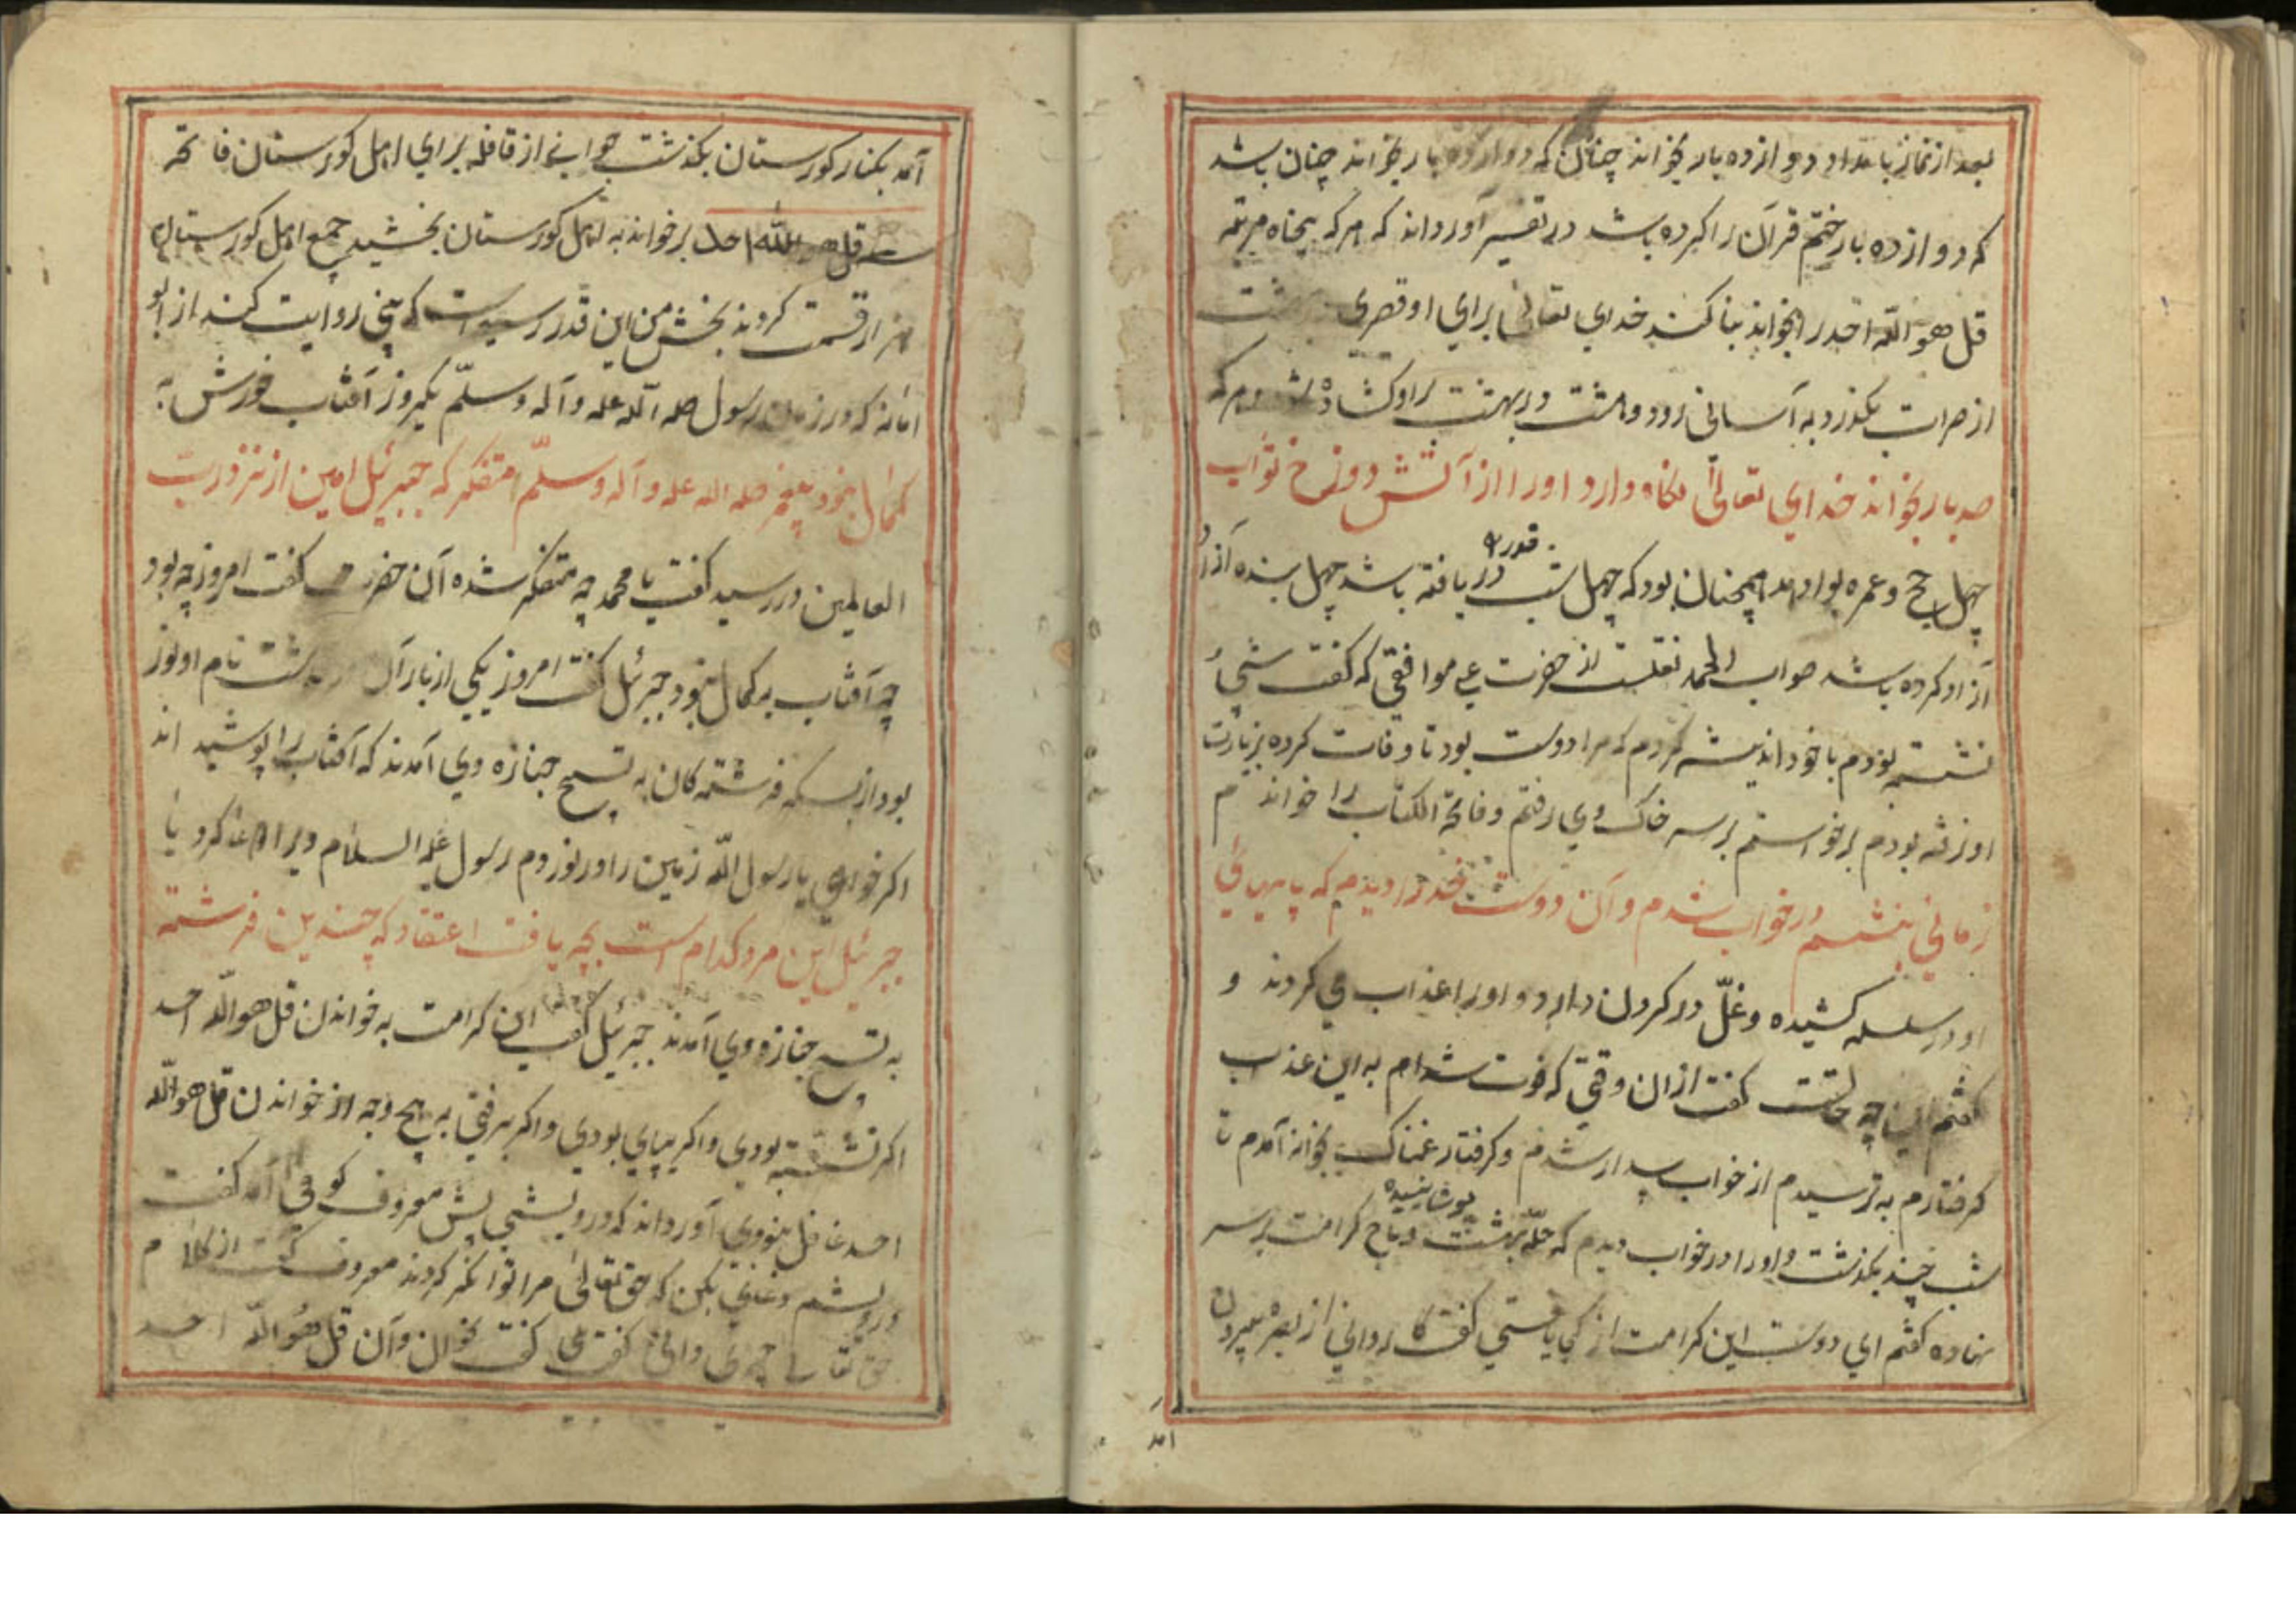 بعد از نماز بامداد دوازده بار بخواند چنان که دوازده بار بخواند چنان باشد
که دوازده بار ختم قرآن را کرده باشد در تفسیر آورداند که هر که پنجاه مرتبه
قل هو الله احد را بخواند بنا کند خدای تعالی برای او قصری
از صرات بکذرد به آسانی رود و هشت در بهشت براو کشاده شود هر که
صد بار بخواند خدای تعالی نکاه دارد اورا از آتش دوزخ ثواب
چهل حج و عمره بوادهد همچنان بود که چهل شب قدر دریافته باشد چهل بنده آزاد
آزاد کرده باشد صواب الحمد نقلست از حضرت علی موافقی که کفت شبی
نشسته بودم با خود اندیشه کردم که مرا دوست بود تا وفات کرده بزیارت
او نرفته بودم برخواستم بر سر خاک وی رفتم و فاتحة الکتاب را خواندم
زمانی بنشستم در خواب شدم و آن دوست خود را دیدم که پاهای
او در سلسله کشیده و غلّ در کردن دارد و اورا عذاب می کردند و
کفتم این چه حالتست کفت از ان وقتی که فوت شدام به این عذب
کرفتارم به ترسیدم از خواب بیدار شدم و کرفتار غمناک بخانه آمدم تا
شب چند بکذشت و اورا در خواب دیدم که حلّه بهشت پوشانیده و تاج کرامت بر سر
نهاده کفتم ای دوست این کرامت از کجا یافتی کفت کاروانی از بصره بیرون
آمد
آمد بکنار کورستان بکذشت جوانی از قافله برای اهل کورستان فاتحه
قل هو الله احد برخواند به اهل کورستان بخشید جمع اهل کورستان
هزار قسمت کردند بخش من این قدر رسیداست که می روایت کند از ابو
امانه که در زمان رسول صلی الله علیه و آله و سلّم یکروز آفتاب خورش به
کمال نبود پیغمبر صلی الله علیه و آله و سلّم متفکر که جبرئیل امین از نزد رب
العالمین در رسید کفت یا محمد چه متفکر شده آن حضرت کفت امروز چه بود
چه آفتاب به کمال نبود جبرئیل کفت امروز یکی از یاران نام او نوز
بود از بسکه فرشته کان به تسبیح جنازه وی آمدند که آفتاب را پوشیداند
اکر خواهی یا رسول الله زمین را در نوردم رسول علیه السلام ویرا دعا کرد یا
جبرئیل این مرد کدام است بچه یافت اعتقاد که چندین فرشته
به تسبیح جنازه وی آمدند جبرئیل کفت این کرامت به خواندن قل هو الله احد
اکر نشسته بودی و اکر بپای بودی و اکر برفتی به هیچ وجه از خواندن قل هو الله
احد غافل نبودی آورداند که درویشی پیش معروف کوخی آمد کفت
درویشم دعای بکن که حق تعالی مرا توانکر کردند معروف کفت از کلام
حق تعالی چیزی دانی کفت بلی کفت بخوان و آن قل هو الله احد